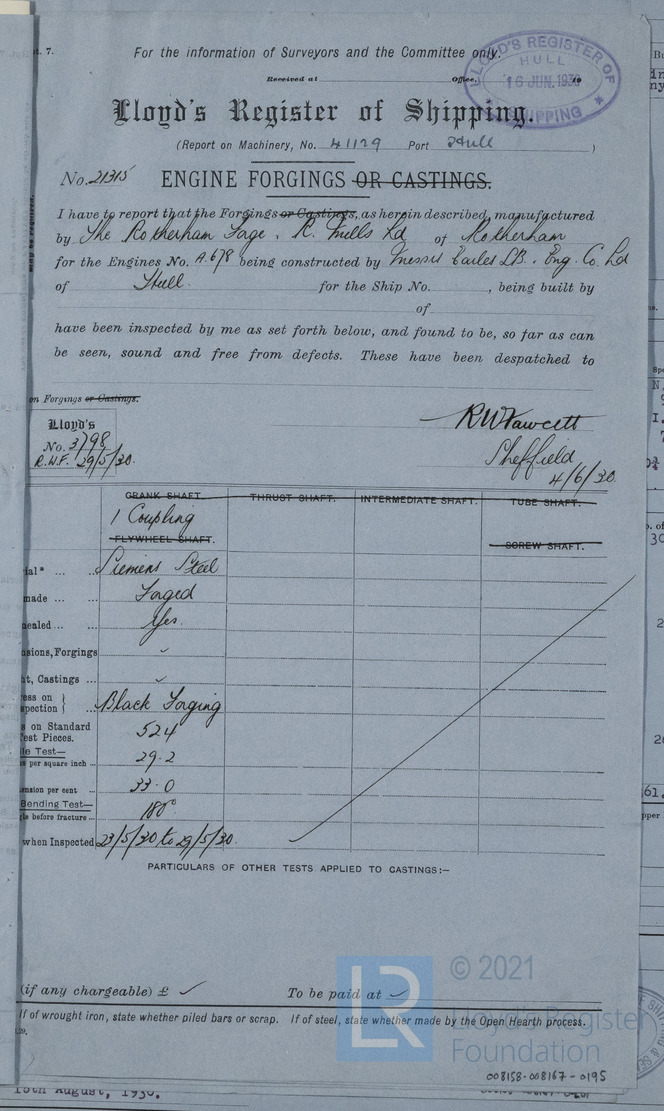 t. 7.
For the information of Surveyors and the Committee only.
Received at Office, 19
LLOYD'S REGISTER OF SHIPPING
HULL
16 JUN. 1930
Lloyd's Register of Shipping.
(Report on Machinery, No. 41129 Port Hull )
No. 21315 ENGINE FORGINGS OR CASTINGS.
I have to report that the Forgings or Castings, as herein described, manufactured
by The Rotherham Forge & R. Mills Ld of Rotherham
for the Engines No. A.678 being constructed by Messrs Earles SB. & Eng. Co. Ld
of Hull for the Ship No. , being built by
of
have been inspected by me as set forth below, and found to be, so far as can
be seen, sound and free from defects. These have been despatched to
on Forgings or Castings.
Lloyd's
No. 3798
R.W.F. 29/5/30.
RWFawcett
Sheffield
4/6/30
CRANK SHAFT. THRUST SHAFT. INTERMEDIATE SHAFT. TUBE SHAFT.
1 Coupling
FLYWHEEL SHAFT. SCREW SHAFT.
ial* ... Siemens Steel
made ... Forged
ealed ... Yes.
sions, Forgings ✓
t, Castings ... ✓
ess on
spection } ... Black Forging
s on Standard
est Pieces. 524
le Test—
s per square inch ... 29.2
ension per cent ... 33.0
Bending Test—
le before fracture ... 180°
when Inspected 23/5/30 to 29/5/30.
PARTICULARS OF OTHER TESTS APPLIED TO CASTINGS:—
(if any chargeable) £ ✓ To be paid at ✓
If of wrought iron, state whether piled bars or scrap. If of steel, state whether made by the Open Hearth process.
© 2021
LR
Lloyd's Register
Foundation
008158-008167-0195
15th August, 1930.